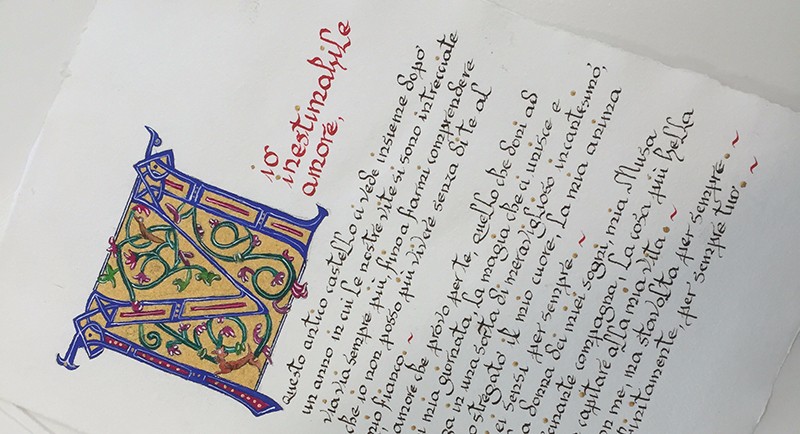 Mio
inestimabile
amore,
Questo antico castello ci vede insieme dopo
un anno in cui le nostre vite si sono intrecciate
via via sempre più fino a farmi comprendere
che io non posso più vivere senza di te al
mio fianco.
amore che provo per te, quello che doni ad
i mia giornata, la magia che ci unisce e
ga in una sorta di meraviglioso incantesimo,
stregato il mio cuore, la mia anima
ei sensi per sempre.
a donna dei miei sogni, mia Musa
inante compagna. La cosa più bella
e capitare alla mia vita.
on me, ma stavolta per sempre.
initamente, per sempre tuo.